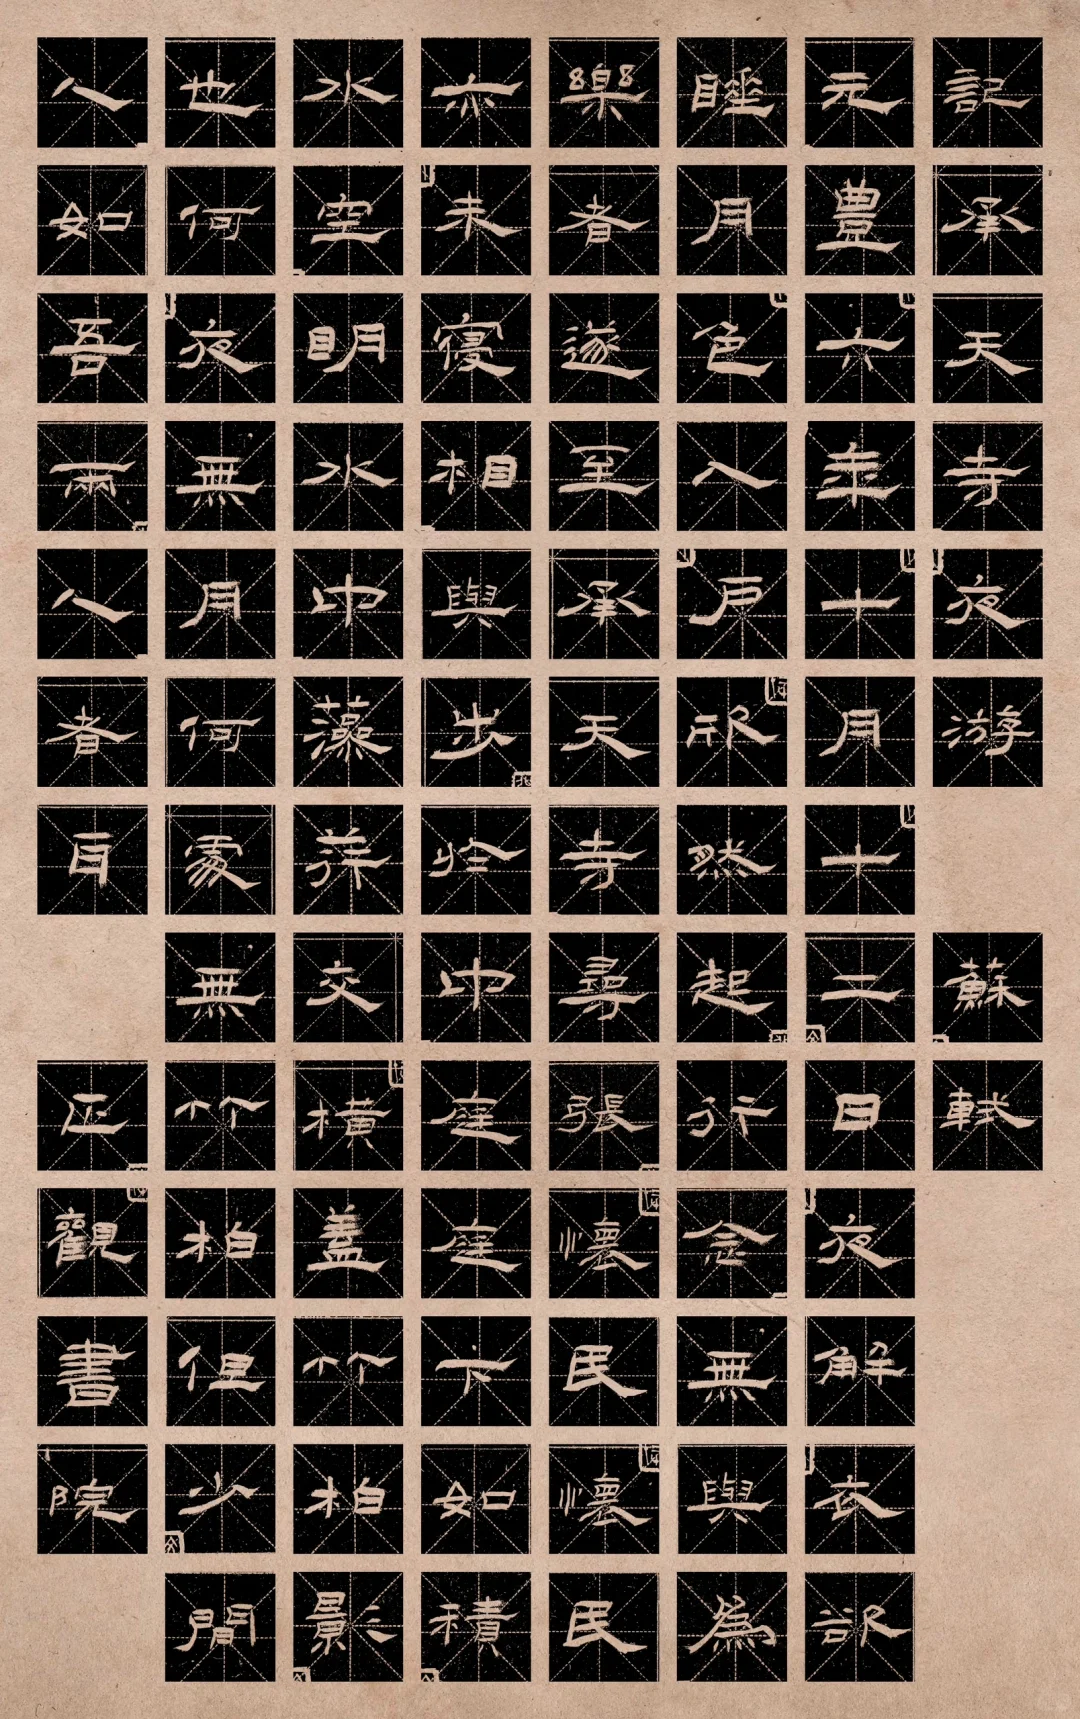 記承天寺夜游 蘇軾
元豊六年十月十二日夜解衣欲
睡月色入戶欣然起行念無與為
樂者遂至承天寺尋張懷民懷民
亦未寢相與步於中庭庭下如積
水空明水中藻荇交橫蓋竹柏影
也何夜無月何處無竹柏但少間
人如吾兩人者耳 正觀書院